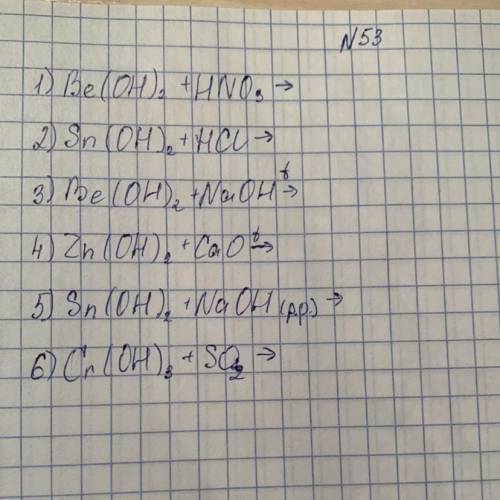 N53
1) Be(OH)₂ + HNO₃ →
2) Sn(OH)₂ + HCl →
3) Be(OH)₂ + NaOH t→
4) Zn(OH)₂ + CaO t→
5) Sn(OH)₂ + NaOH (р.р.) →
6) Cr(OH)₃ + SO₂ →